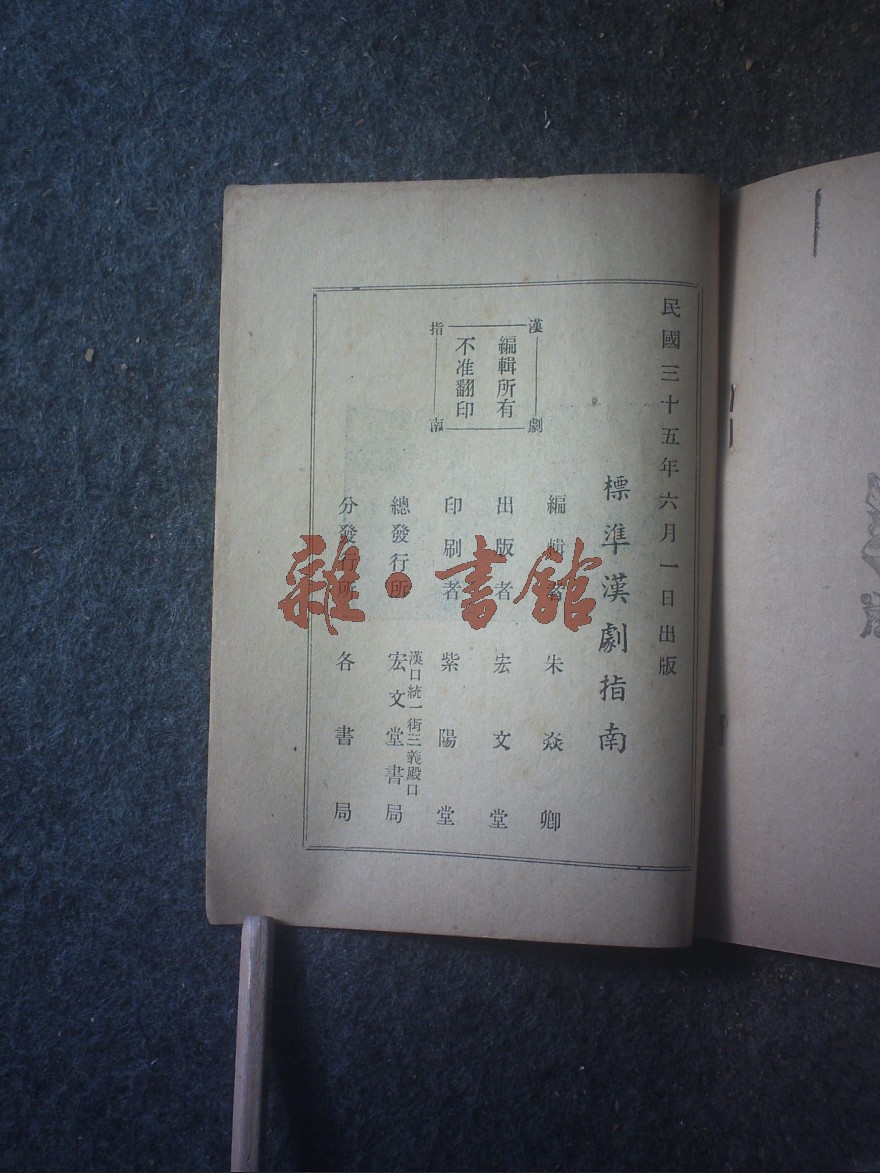 民國三十五年六月一日出版
標準漢劇指南
漢劇指南
編輯所有
不准翻印
編輯者 朱焱卿
出版者 宏文堂
印刷者 紫陽堂
總發行所 漢口統一街三義殿口 宏文堂書局
分發行所 各書局
雜·書館